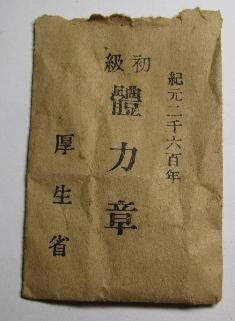 紀元二千六百年
初級
體力章
厚生省